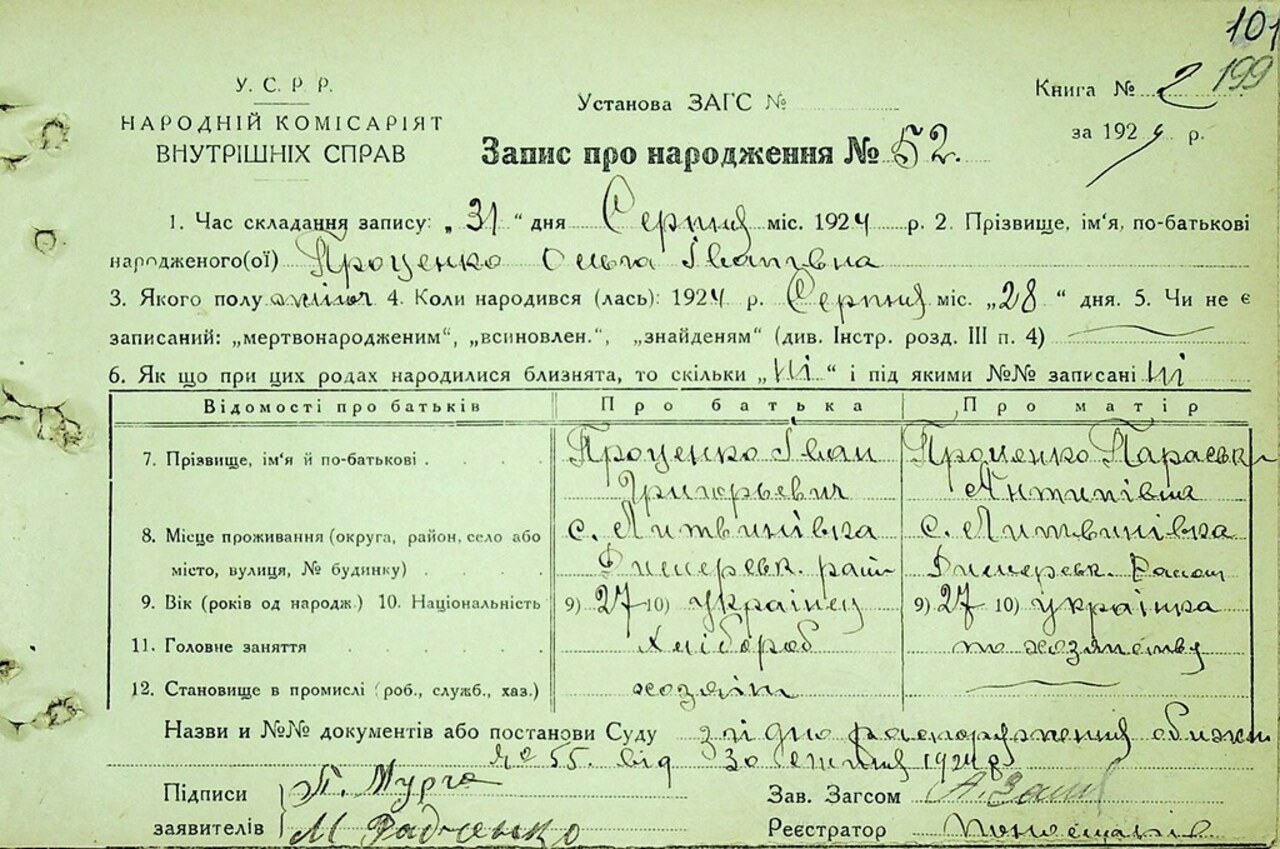 101
199
У. С. Р. Р.
НАРОДНІЙ КОМІСАРІЯТ
ВНУТРІШНІХ СПРАВ
Установа ЗАГС №
Книга № 2
за 1924 р.
Запис про народження № 52.
1. Час складання запису: „31" дня Серпня міс. 1924 р. 2. Прізвище, ім'я, по-батькові
народженого(ої) Проценко Ольга Іванівна
3. Якого полу жіноч 4. Коли народився (лась): 1924 р. Серпня міс. „28" дня. 5. Чи не є
записаний: „мертвонародженим", „всиновлен.", „знайденям" (див. Інстр. розд. III п. 4)
6. Як що при цих родах народилися близнята, то скільки „ні" і під якими №№ записані ні
Відомості про батьків Про батька Про матір
7. Прізвище, ім'я й по-батькові Проценко Іван Проценко Параск
Григорьевич Антипівна
8. Місце проживання (округа, район, село або с. Литвинівка с. Литвинівка
місто, вулиця, № будинку) Димерськ. рай Димерськ. Район
9. Вік (років од народж.) 10. Національність 9) 27 10) українец 9) 27 10) українка
11. Головне заняття Хлібороб по хозяйству
12. Становище в промислі (роб., служб., хаз.) хозяїн
Назви и №№ документів або постанови Суду згідно распоряження
№ 55. від 30 1924 р
Підписи П. Мурга Зав. Загсом А.
заявителів М Радченко Реєстратор